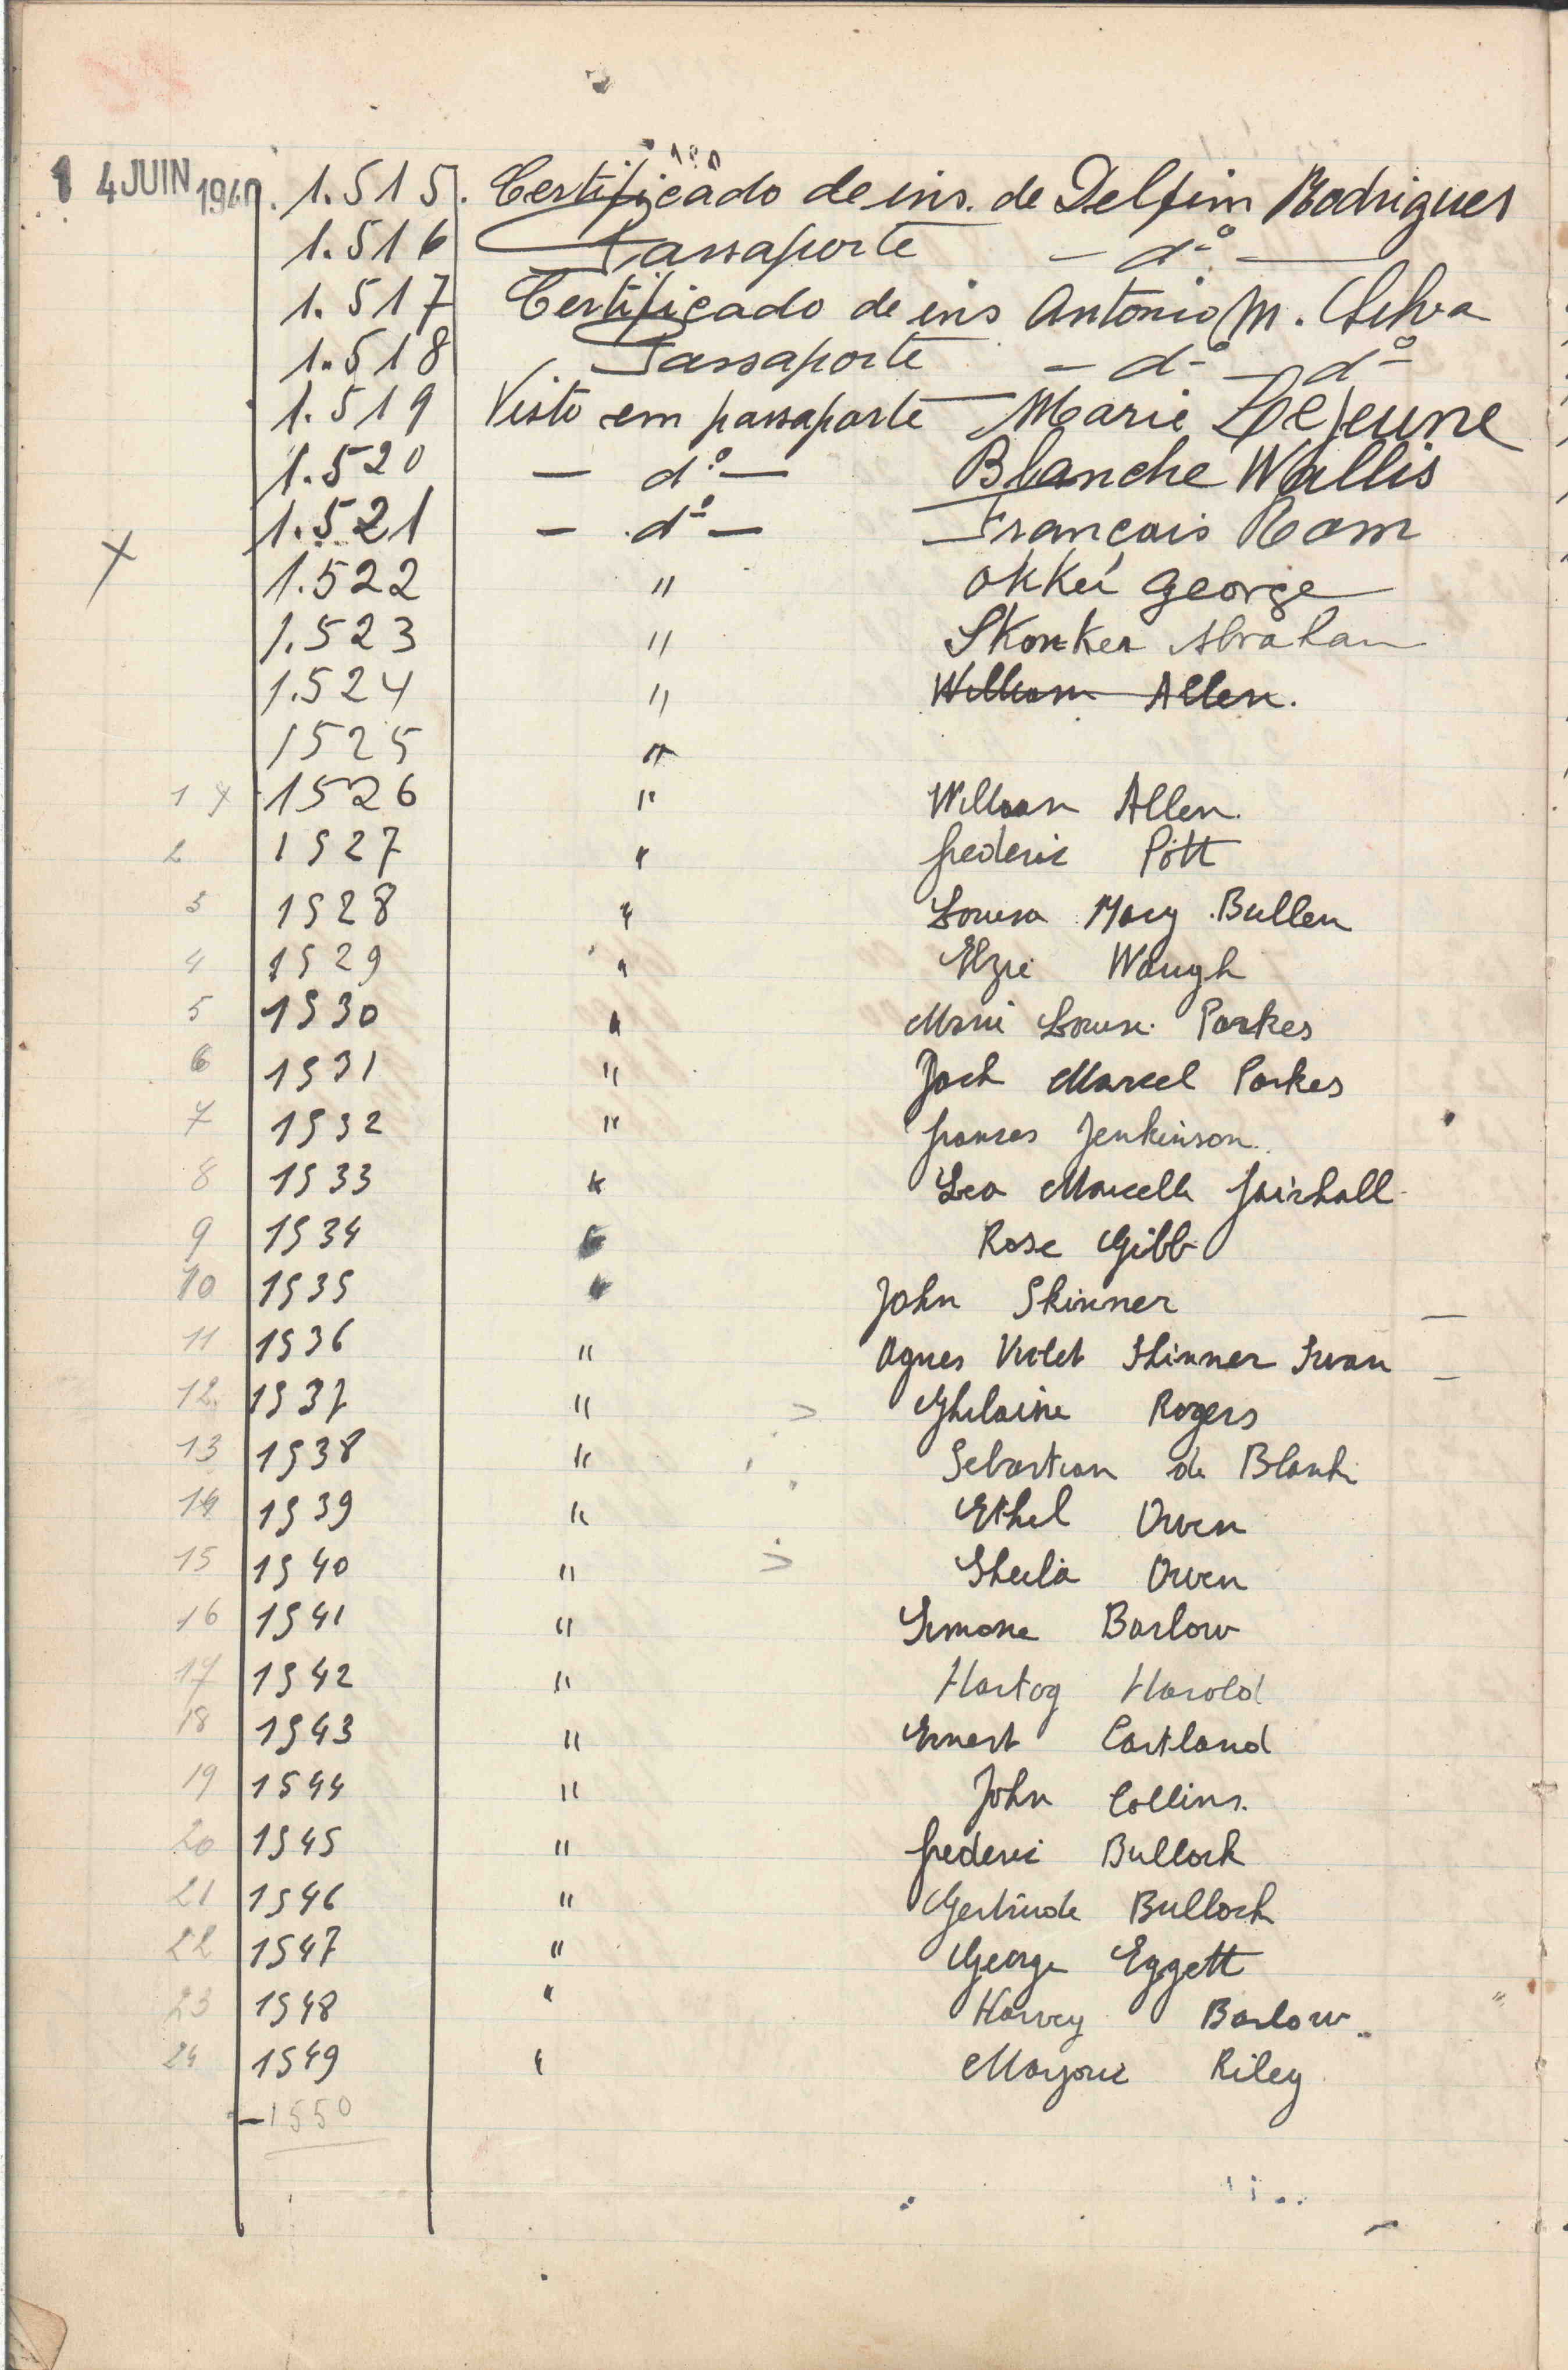 14 JUIN 1940. 1.515. Certificado de ins. de Delfim Rodrigues
1.516 Passaporte — dº —
1.517 Certificado de ins Antonio M. Silva
1.518 Passaporte — dº — dº
1.519 Visto em passaporte — Marie Lejeune
1.520 — dº — Blanche Wallis
1.521 — dº — François Rom
X 1.522 " Okkei George
1.523 " Skonker Abraham
1.524 " William Allen.
1525 "
1 X 1526 " William Allen.
2 1527 " Frederic Pött
3 1528 " Louisa Mary Bullen
4 1529 " Elzie Waugh
5 1530 " Marie Louise Parkes
6 1531 " Jack Marcel Parkes
7 1532 " Frances Jenkinson.
8 1533 " Lea Marcelle Fairhall
9 1534 " Rose Gibb
10 1535 " John Skinner —
11 1536 " Agnes Violet Skinner Swan —
12 1537 " > Ghilaine Rogers
13 1538 " Sebastian de Blank
14 1539 " Ethel Owen
15 1540 " > Sheila Owen
16 1541 " Simone Barlow
17 1542 " Hartog Harold
18 1543 " Ernest Cartland
19 1544 " John Collins.
20 1545 " Frederic Bullock
21 1546 " Gertrude Bullock
22 1547 " George Eggett
23 1548 " Harvey Barlow "
24 1549 " Marjorie Riley
— 1550